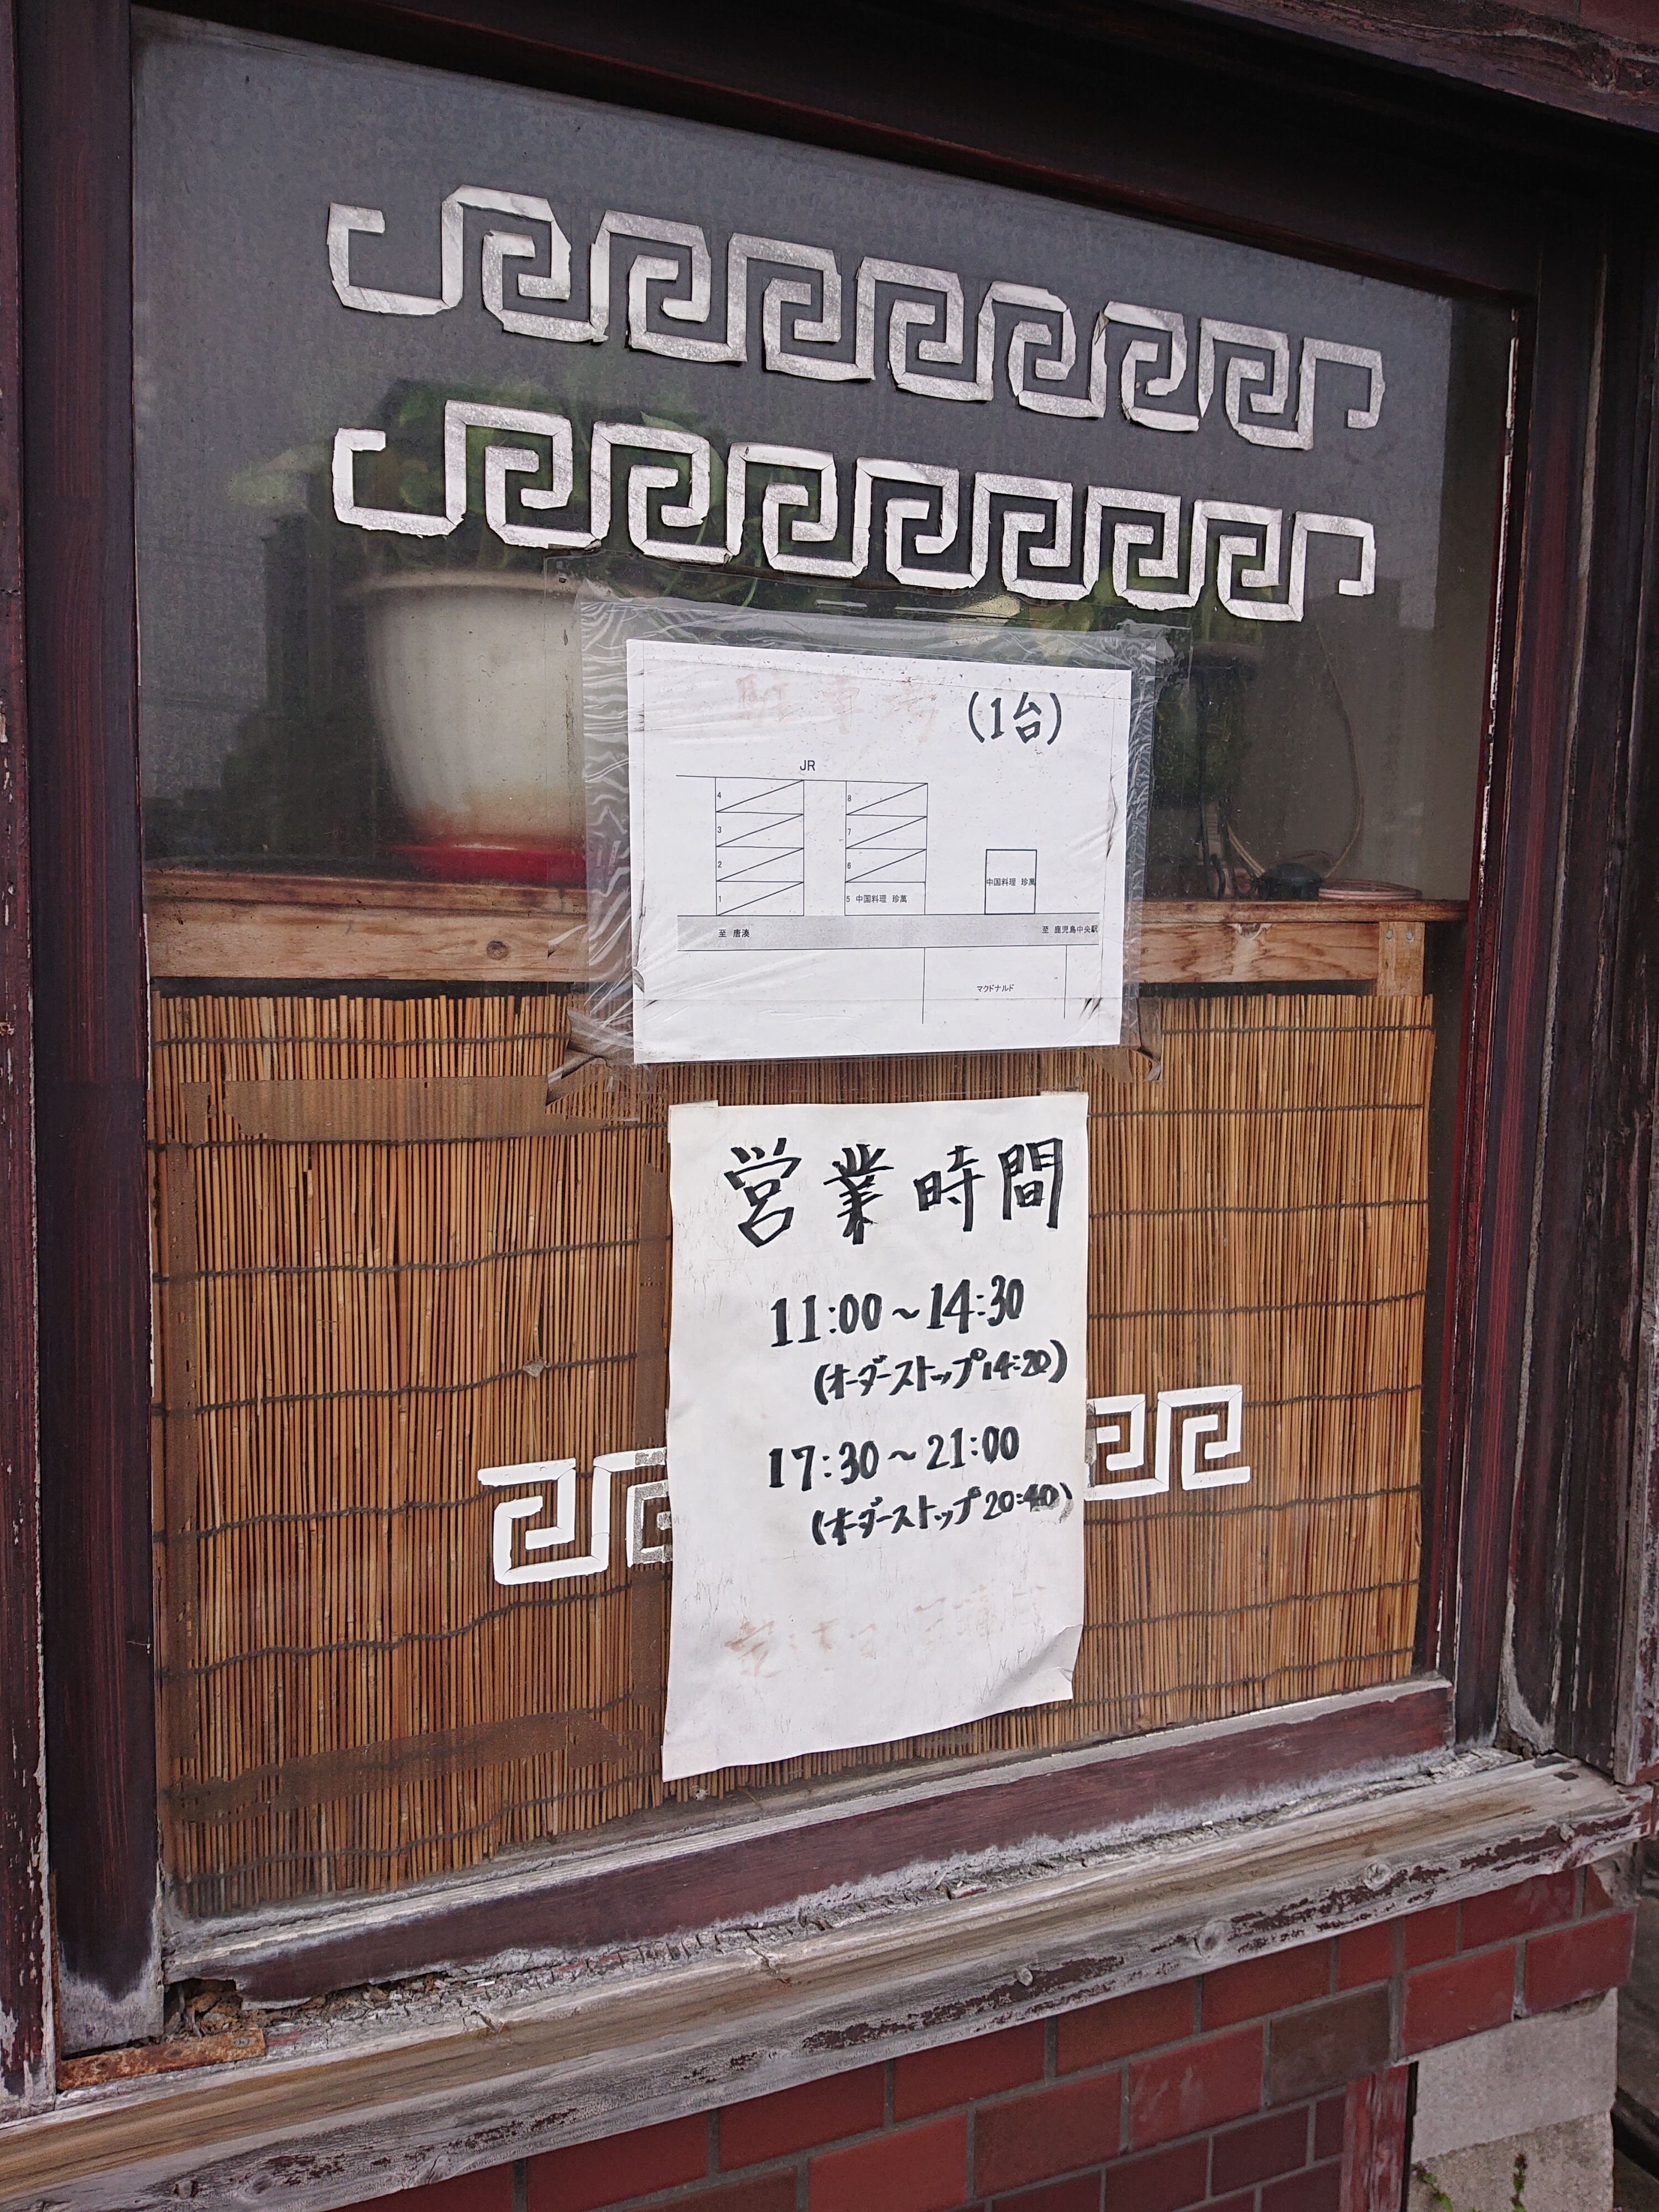 駐車場 (1台)
JR
4 8
3 7
2 6
1 5 中国料理 珍萬
中国料理 珍萬
至 唐湊 至 鹿児島中央駅
マクドナルド
営業時間
11:00~14:30
(オーダーストップ14:20)
17:30~21:00
(オーダーストップ20:40)